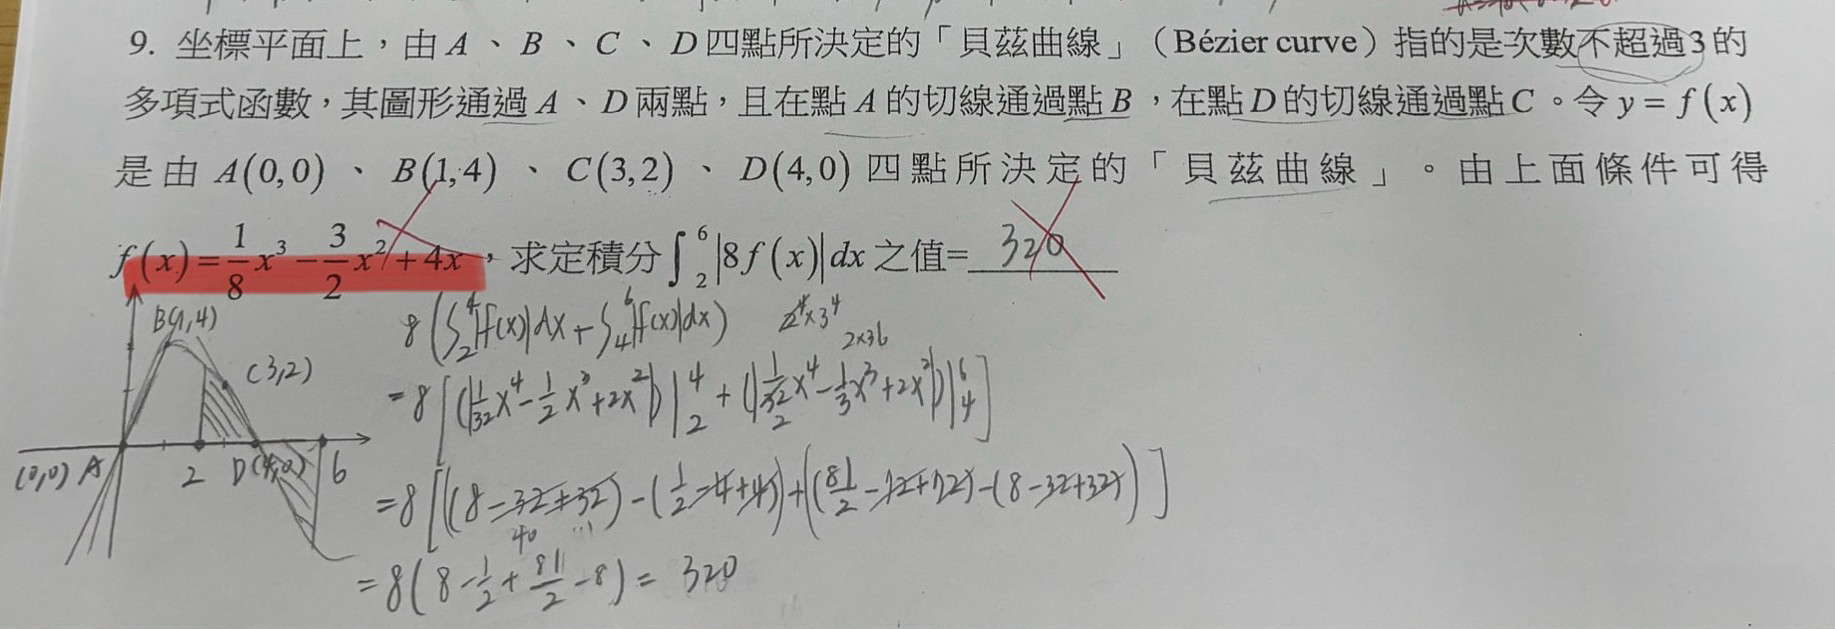 9. 坐標平面上，由 A 、 B 、 C 、 D 四點所決定的「貝茲曲線」（Bézier curve）指的是次數不超過3的
多項式函數，其圖形通過 A 、 D 兩點，且在點 A 的切線通過點 B ，在點 D 的切線通過點 C 。令 y = f(x)
是由 A(0,0) 、 B(1,4) 、 C(3,2) 、 D(4,0) 四點所決定的「貝茲曲線」。由上面條件可得
f(x)=1/8 x³ - 3/2 x² + 4x ，求定積分 ∫₂⁶ |8f(x)| dx 之值= 320
B(1,4)
C(3,2)
(0,0) A 2 D(4,0) 6
8(∫₂⁴|f(x)|dx + ∫₄⁶|f(x)|dx) 2⁴×3⁴
2×36
= 8[(|1/32 x⁴ - 1/2 x³ + 2x²|)|₂⁴ + (|1/32 x⁴ - 1/2 x³ + 2x²|)|₄⁶]
= 8[(8-32+32) - (1/2-4+4)) + ((81/2-72+72) - (8-32+32))]
40
= 8(8 - 1/2 + 81/2 - 8) = 320